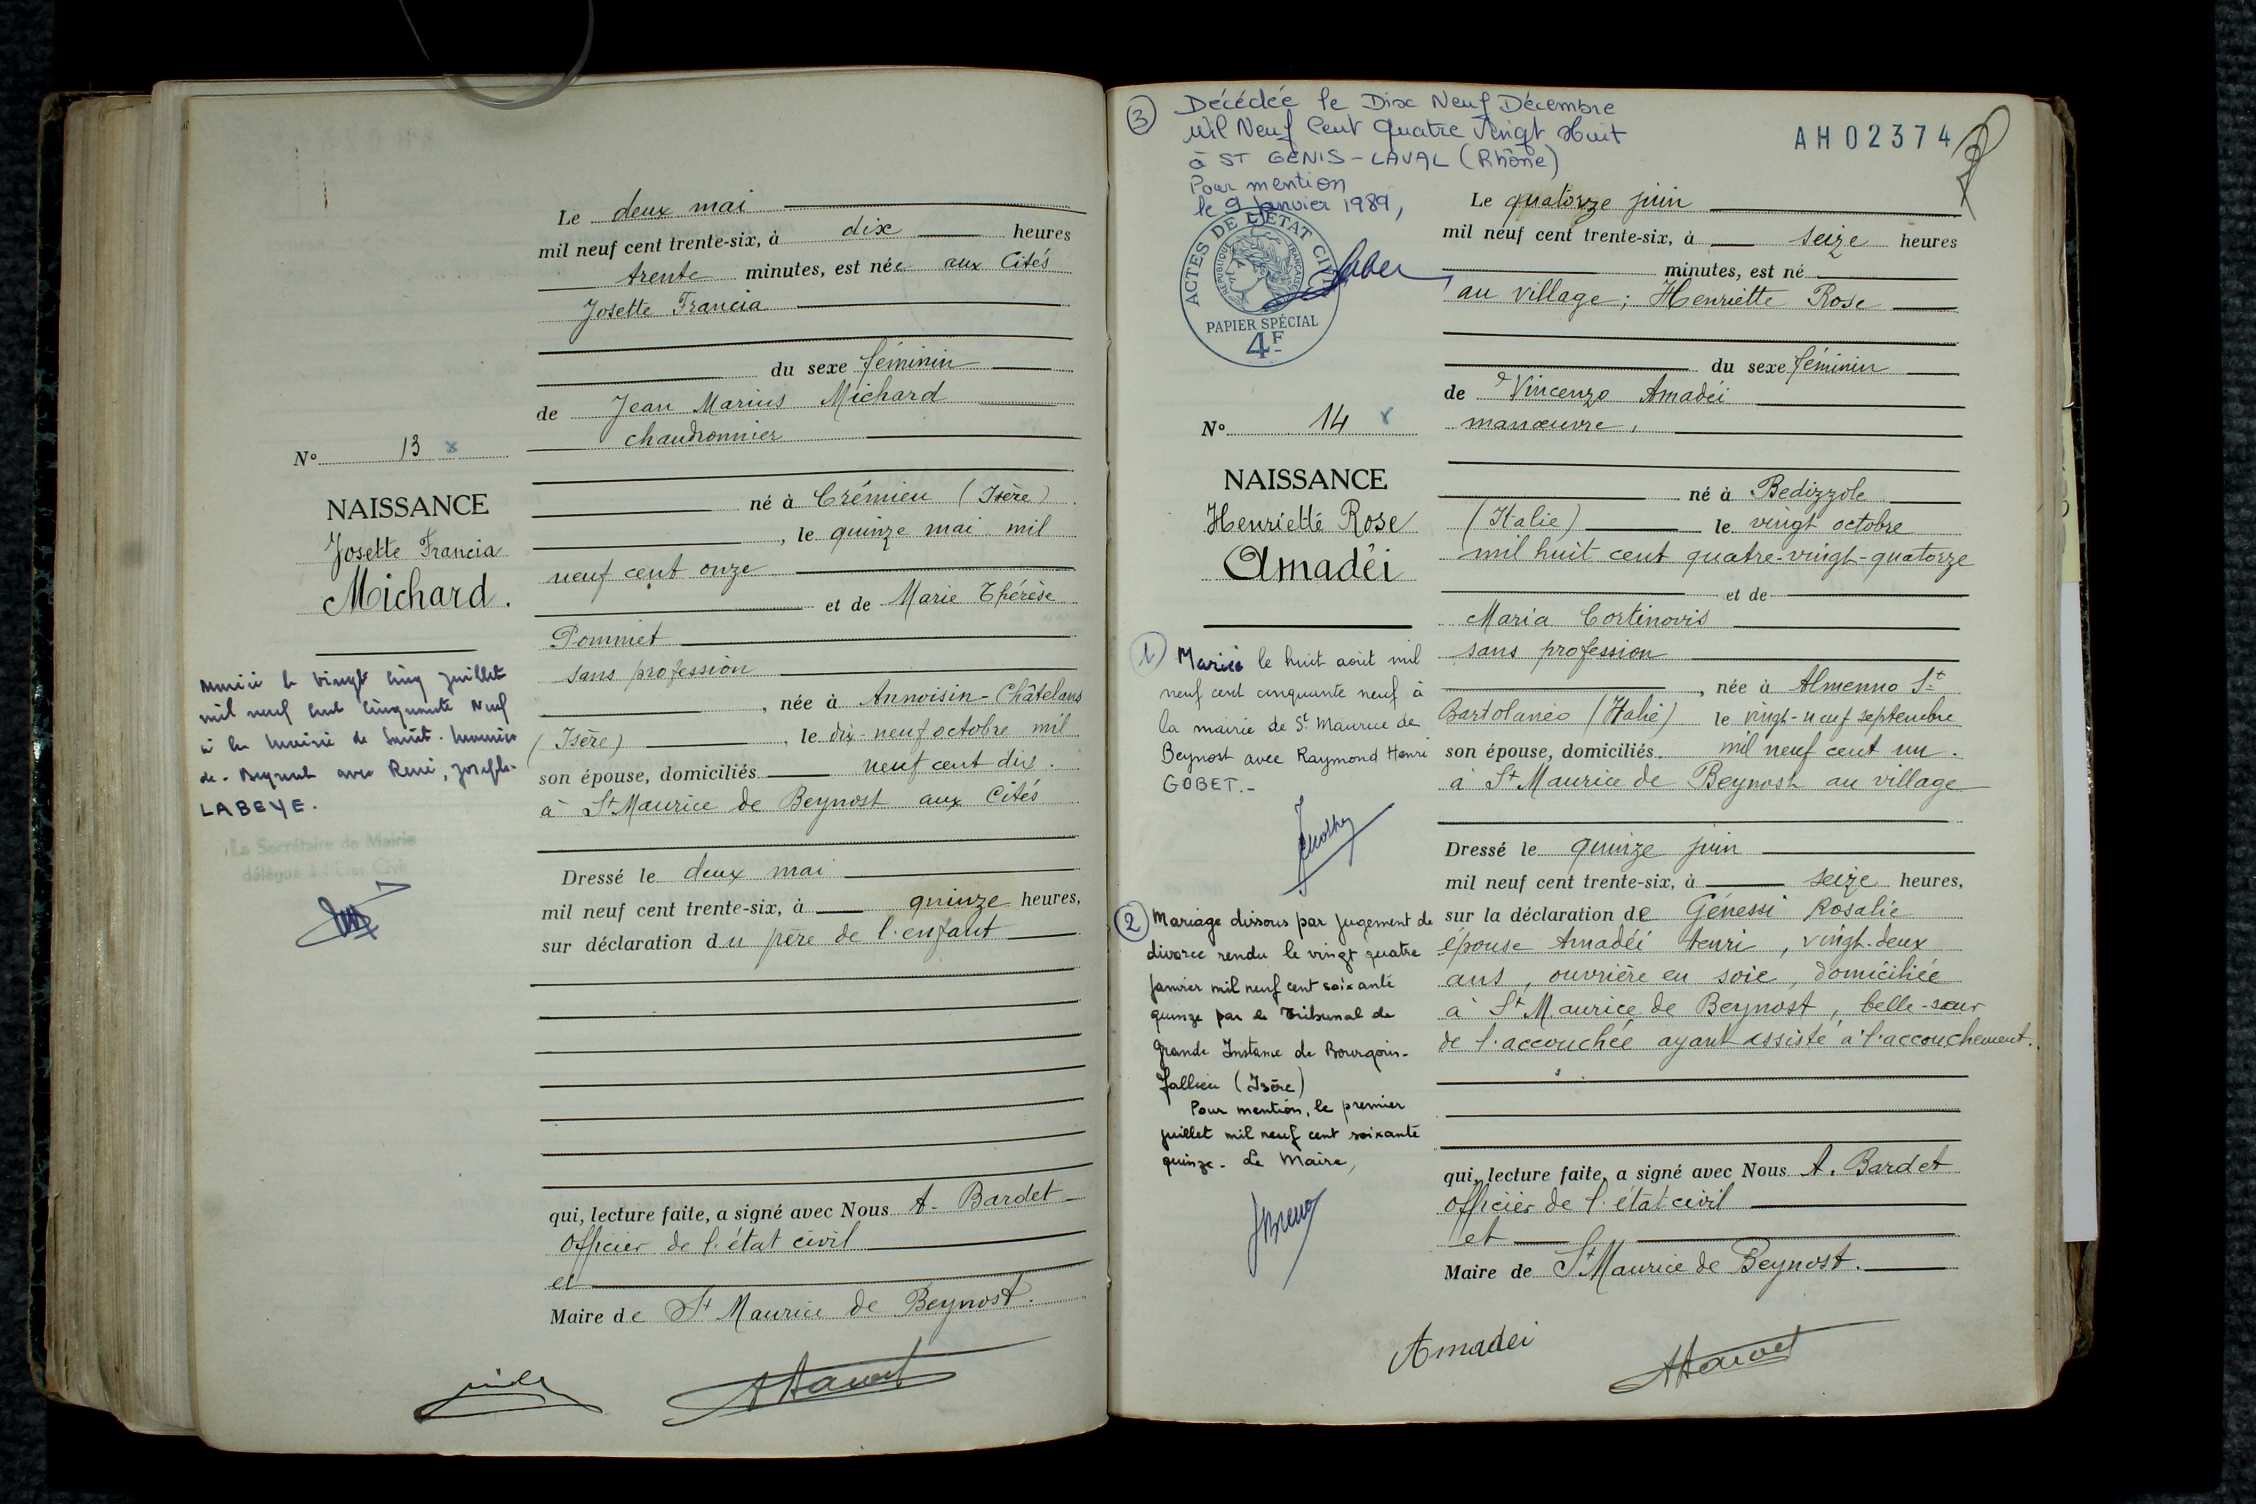 Le deux mai
mil neuf cent trente-six, à dix heures
trente minutes, est née aux Cités
Josette Francia
du sexe féminin
de Jean Marius Michard
chaudronnier
N° 13
NAISSANCE
Josette Francia
Michard.
né à Crémieu (Isère)
, le quinze mai mil
neuf cent onze
et de Marie Thérèse
Pommet
sans profession
, née à Annoisin-Châtelans
(Isère) , le dix-neuf octobre mil
son épouse, domiciliés neuf cent dix.
à St Maurice de Beynost aux Cités
Marié le vingt cinq juillet
mil neuf cent cinquante neuf
à la mairie de Saint-Maurice
de-Beynost avec René, Joseph-
LABEYE.
Le Secrétaire de Mairie
délégué à l'Etat Civil
Dressé le deux mai
mil neuf cent trente-six, à quinze heures,
sur déclaration du père de l'enfant
qui, lecture faite, a signé avec Nous A. Bardet
Officier de l'état civil
et
Maire de St Maurice de Beynost.
3 Décédée le Dix Neuf Décembre
Mil Neuf Cent Quatre Vingt Huit
à ST GENIS-LAVAL (Rhône)
Pour mention
le 9 Janvier 1989,
ACTES DE L'ETAT CIVIL
REPUBLIQUE FRANCAISE
PAPIER SPÉCIAL
4F
AH02374
Le quatorze juin
mil neuf cent trente-six, à seize heures
minutes, est né
au village; Henriette Rose
du sexe féminin
de Vincenzo Amadéi
manœuvre,
N° 14
NAISSANCE
Henriette Rose
Amadéi
né à Bedizzole
(Italie) le vingt octobre
mil huit cent quatre-vingt-quatorze
et de
Maria Cortinovis
sans profession
, née à Almenno St
Bartolanéo (Italie) le vingt-neuf septembre
son épouse, domiciliés mil neuf cent un.
à St Maurice de Beynost au village
1 Mariée le huit août mil
neuf cent cinquante neuf à
la mairie de St Maurice de
Beynost avec Raymond Henri
GOBET.-
2 Mariage dissous par jugement de
divorce rendu le vingt quatre
Janvier mil neuf cent soixante
quinze par le Tribunal de
Grande Instance de Bourgoin-
Jallieu (Isère)
Pour mention, le premier
juillet mil neuf cent soixante
quinze. Le Maire,
Dressé le quinze juin
mil neuf cent trente-six, à seize heures,
sur la déclaration de Génessi Rosalie
épouse Amadéi Henri, vingt-deux
ans, ouvrière en soie, domiciliée
à St Maurice de Beynost, belle-sœur
de l'accouchée ayant assisté à l'accouchement.
qui, lecture faite, a signé avec Nous A. Bardet
Officier de l'état civil
et
Maire de St Maurice de Beynost.
Amadei